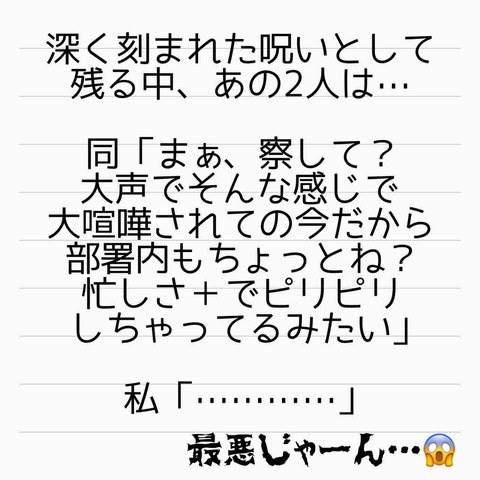 深く刻まれた呪いとして
残る中、あの2人は…
同「まぁ、察して？
大声でそんな感じで
大喧嘩されての今だから
部署内もちょっとね？
忙しさ＋でピリピリ
しちゃってるみたい」
私「…………」
最悪じゃーん…😱